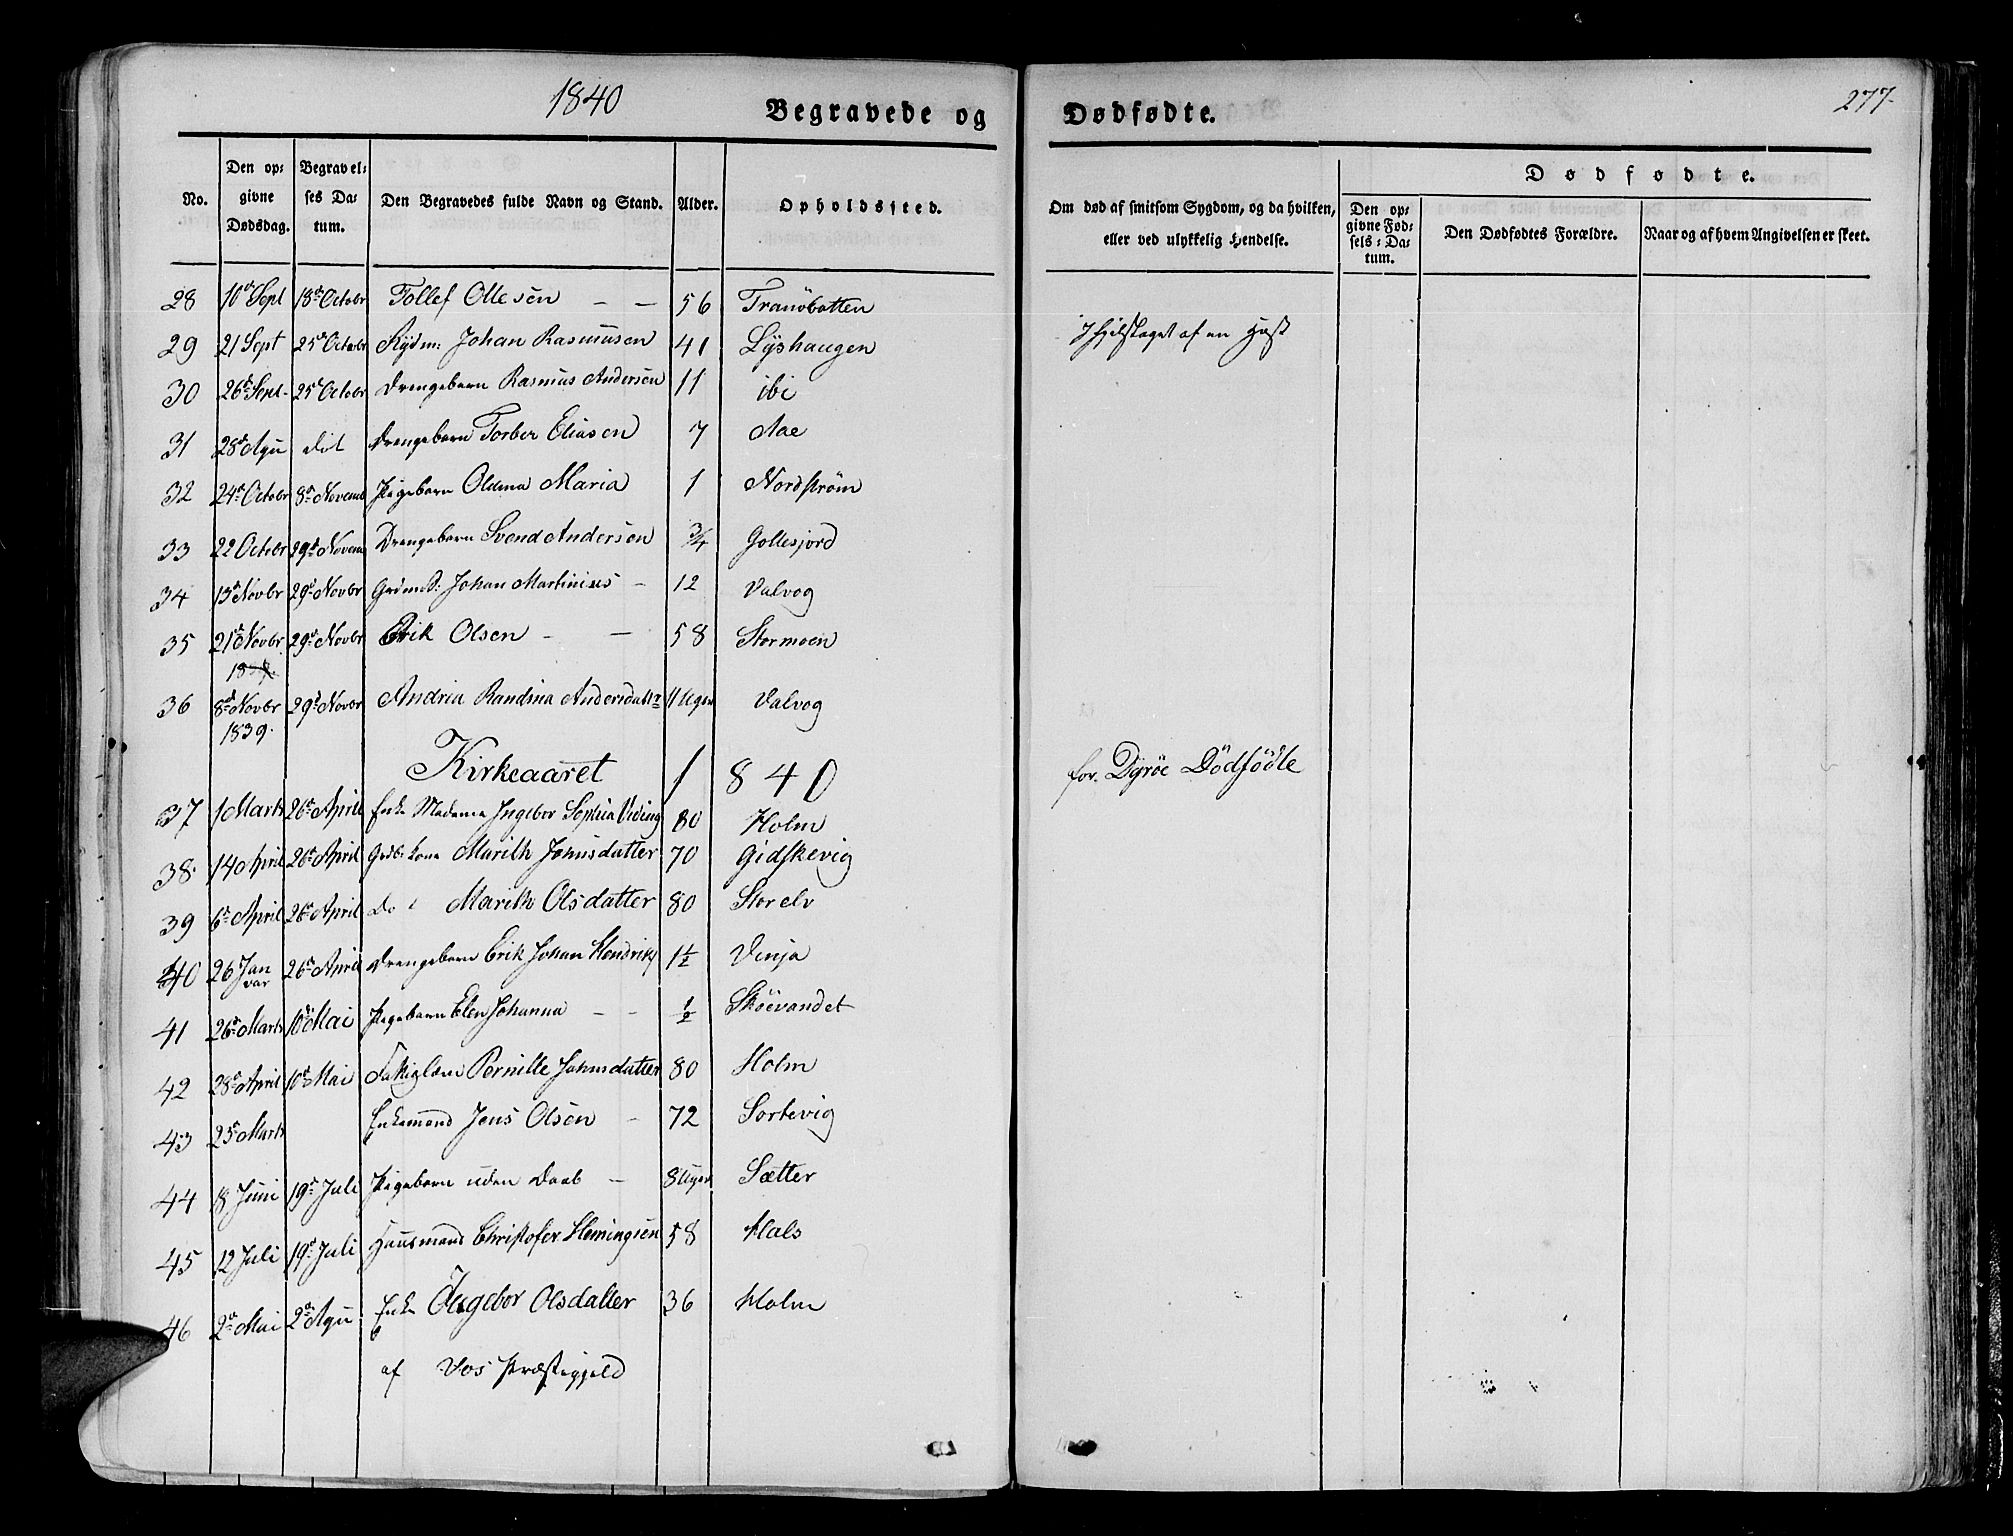 1840 Begravede og Dødfødte. 277.
No. Den opgivne Dødsdag. Begravelses Datum. Den Begravedes fulde Navn og Stand. Alder. Opholdssted. Om død af smitsom Sygdom, og da hvilken, eller ved ulykkelig Hendelse. Dødfødte. Den opgivne Fødsels-Datum. Den Dødfødtes Forældre. Naar og af hvem Angivelsen er skeet.
28 10de Sept 18de Octobr Tollef Ollesen — — 56 Tranöbotten
29 21 Sept 25de Octobr Johan Rasmusen 41 Lyshaugen Ihjelslaget af en Hest
30 26de Sept. 25de Octobr Drengebarn Rasmus Andersen 11 ibi
31 28de Agu dit Drengebarn Torber Eliasen 7 Aae
32 24de Octobr 8de Novemb Pigebarn Oldma Maria 1 Nordström
33 22 Octobr 29de Novemb Drengebarn Svend Andersen 3/4 Gollesjord
34 13de Novbr 29de Novbr Johan Martinius — 12 Valvog
35 21de Novbr 29de Novbr Erik Olsen — — 58 Stormoen
36 8de Novbr 1839. 29de Novbr Andria Randina Andersdattr 11 Uger Valvog
Kirkeaaret 1840 for Dyröe Dödfödte
37 1 Marts 26de April Enke Madame Ingebor Sophia Viding 80 Holm
38 14 April 26de April Gedb: kone Marith Johnsdatter 70 Gidskevig
39 6te April 26de April Do Marith Olsdatter 80 Storelv
40 26 Januar 26de April Drengebarn Erik Johan Hendriks 1 1/2 Vinja
41 26de Marts 10de Mai Pigebarn Elen Johanna — — 1/2 Sköevandet
42 28de April 10de Mai Fattiglem Pernille Johnsdatter 80 Holm
43 25de Marts Enkemand Jens Olsen — 72 Sortevig
44 8 Juni 19de Juli Pigebarn uden Daab — 8 Uger Sætter
45 12 Juli 19de Juli Huusmand Christofer Hemingsen 58 Hals
46 2de Mai 2de Agu Enke Ingebor Olsdatter 36 Holm
af Vos Præstegjeld